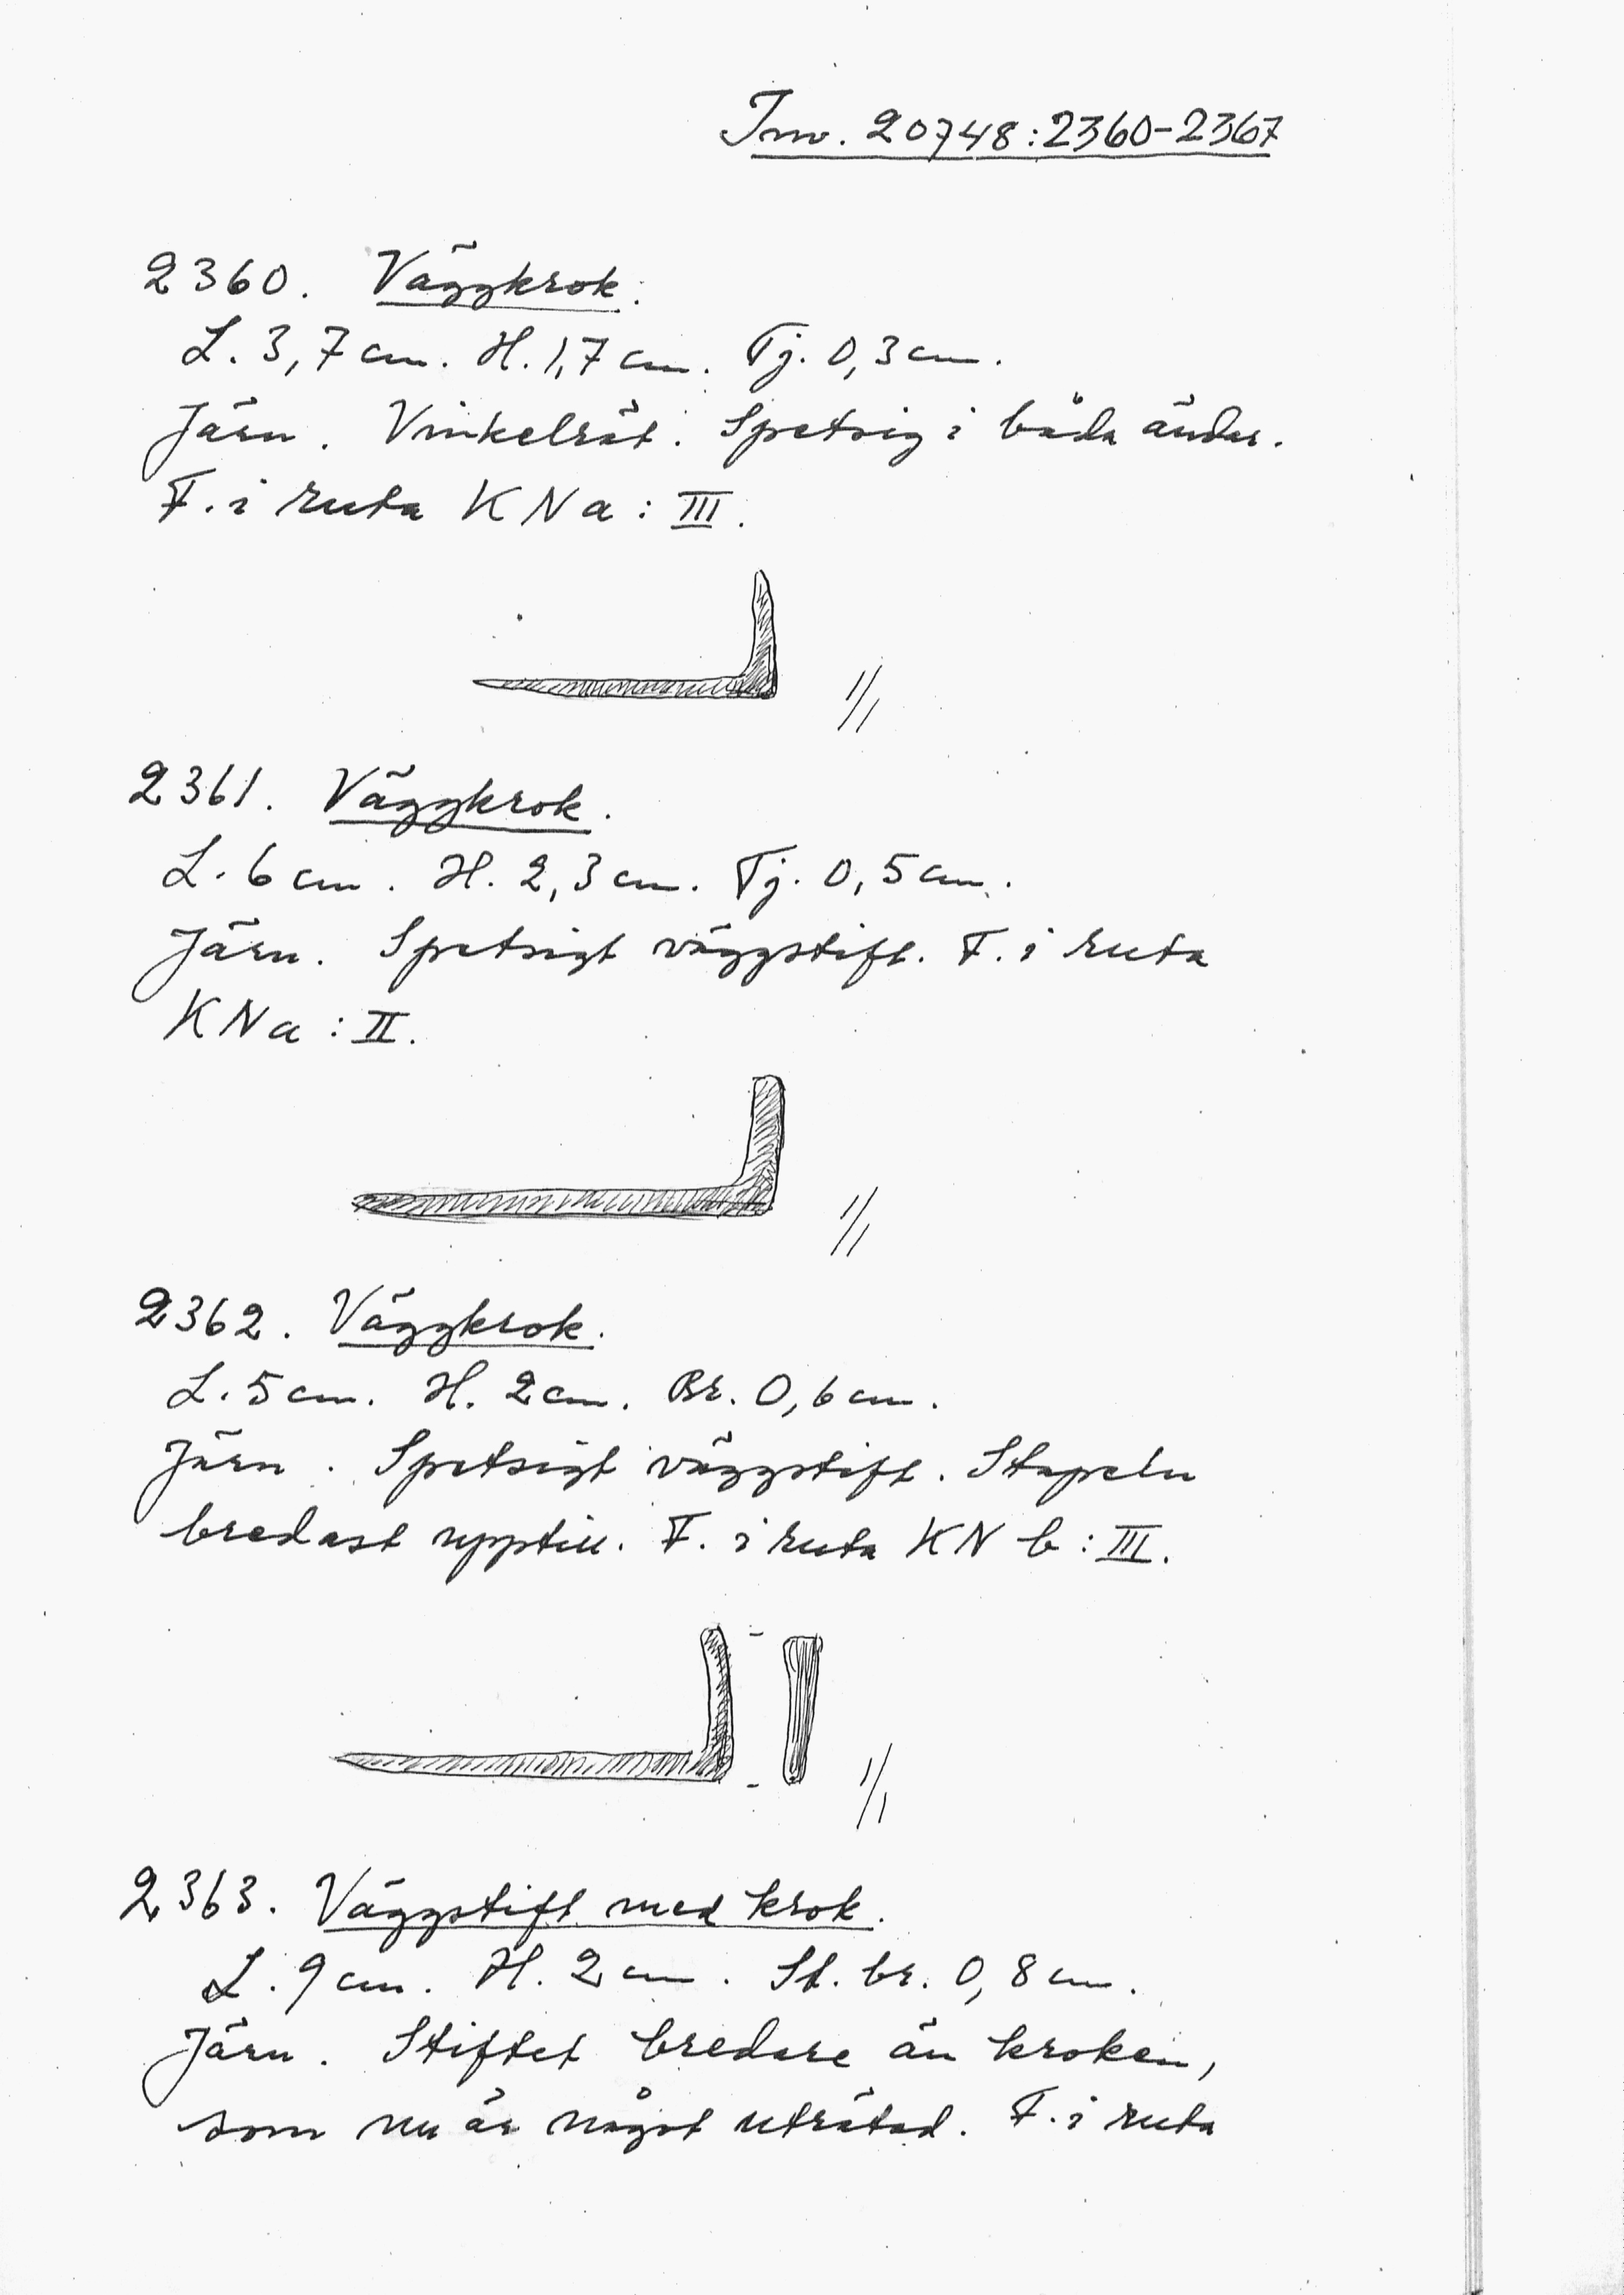 Inv. 20748:2360-2367
2360. Väggkrok.
L. 3,7 cm. H. 1,7 cm. Tj. 0,3 cm.
Järn. Vinkelrät. Spetsig i båda ändar.
F. i ruta KNa: III.
1/1
2361. Väggkrok.
L. 6 cm. H. 2,3 cm. Tj. 0,5 cm.
Järn. Spetsigt väggstift. F. i ruta
KNa: II.
1/1
2362. Väggkrok.
L. 5 cm. H. 2 cm. Br. 0,6 cm.
Järn. Spetsigt väggstift. Stapeln
bredast upptill. F. i ruta KN b: III.
1/1
2363. Väggstift med krok.
L. 9 cm. H. 2 cm. St. br. 0,8 cm.
Järn. Stiftet bredare än kroken,
som nu är något uträtad. F. i ruta